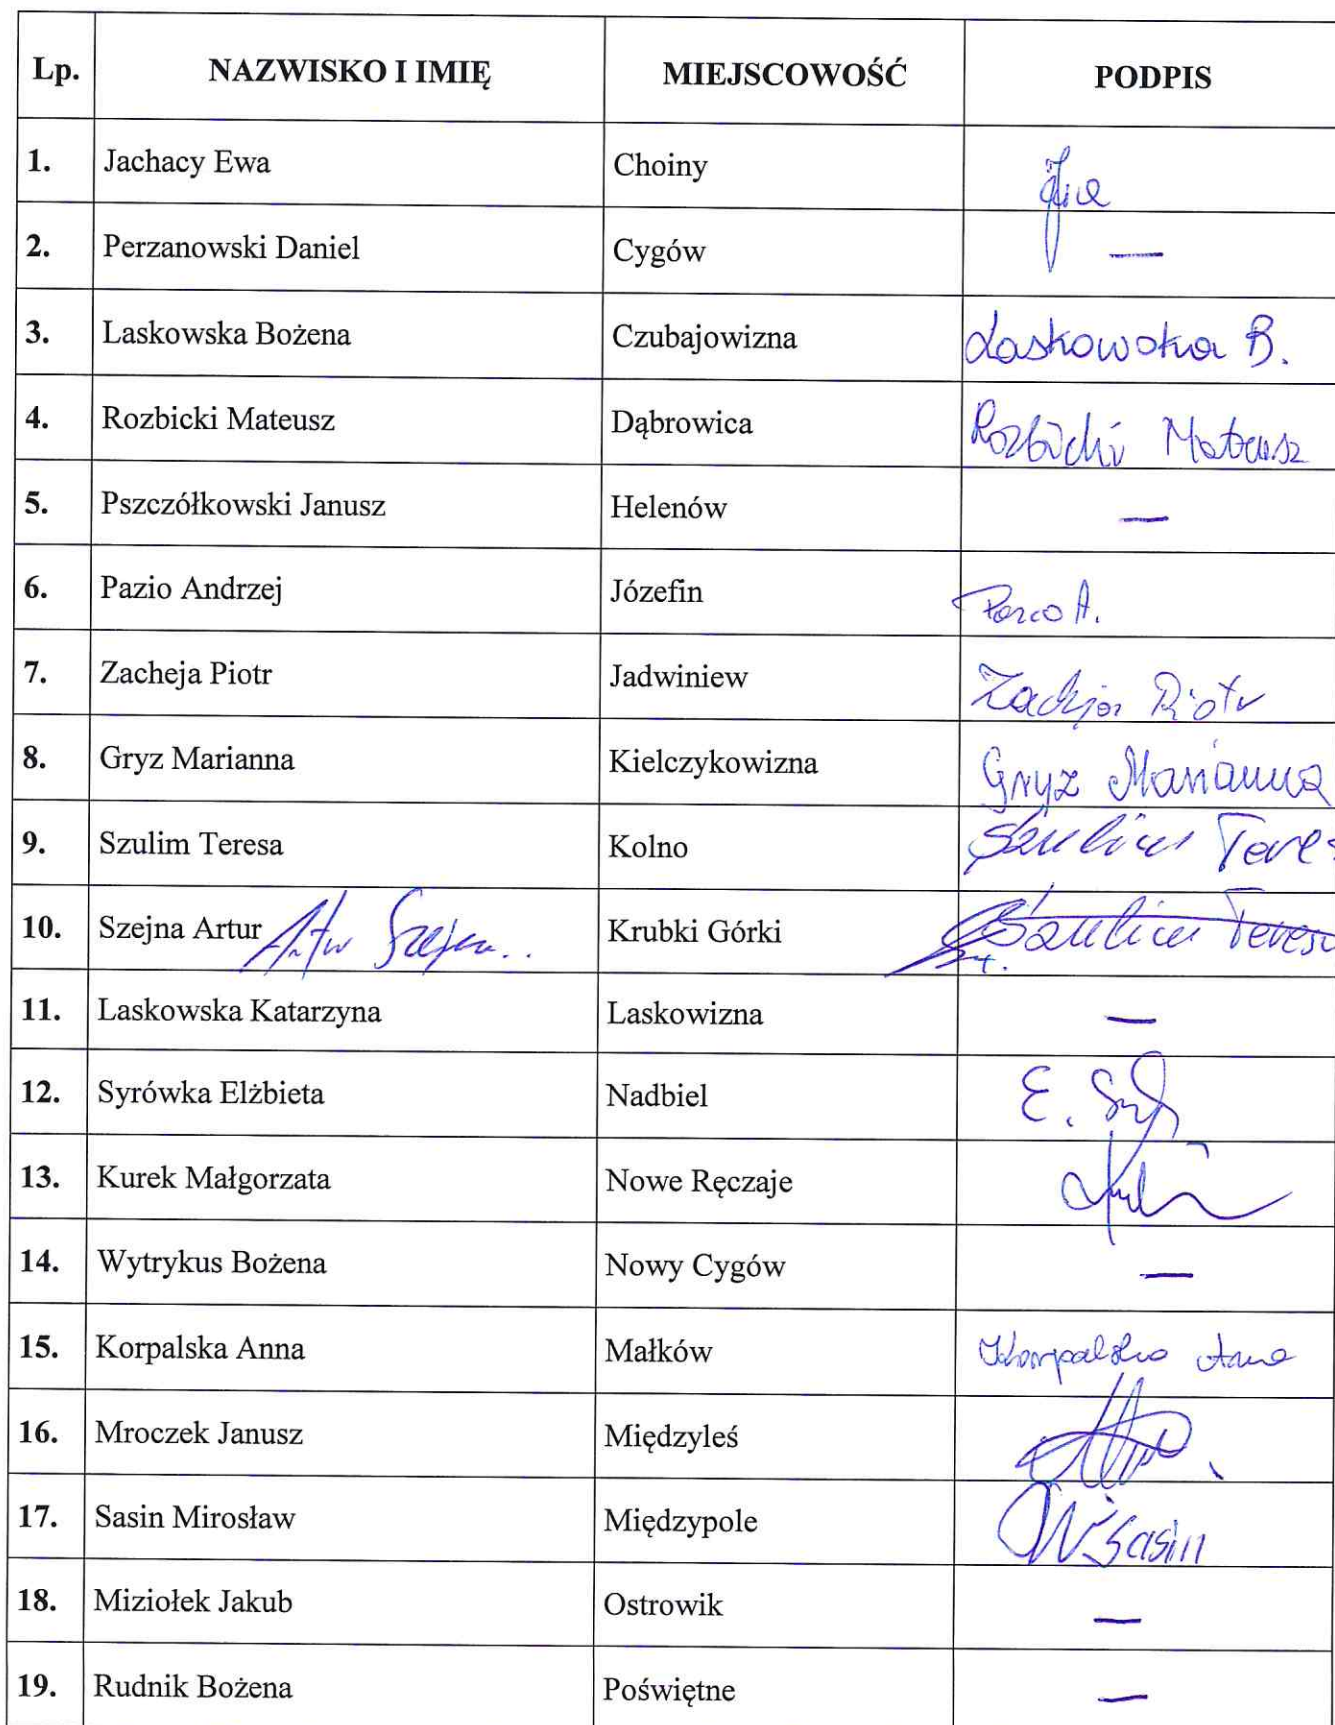 Lp. NAZWISKO I IMIĘ MIEJSCOWOŚĆ PODPIS
1. Jachacy Ewa Choiny
2. Perzanowski Daniel Cygów —
3. Laskowska Bożena Czubajowizna Laskowska B.
4. Rozbicki Mateusz Dąbrowica Rozbicki Mateusz
5. Pszczółkowski Janusz Helenów —
6. Pazio Andrzej Józefin Pazio A.
7. Zacheja Piotr Jadwiniew Zacheja Piotr
8. Gryz Marianna Kielczykowizna Gryz Marianna
9. Szulim Teresa Kolno Szulim Teres
10. Szejna Artur Artur Szejna.. Krubki Górki Szulim Teresa
11. Laskowska Katarzyna Laskowizna —
12. Syrówka Elżbieta Nadbiel E.
13. Kurek Małgorzata Nowe Ręczaje
14. Wytrykus Bożena Nowy Cygów —
15. Korpalska Anna Małków Korpalska Anna
16. Mroczek Janusz Międzyleś
17. Sasin Mirosław Międzypole Sasin
18. Miziołek Jakub Ostrowik —
19. Rudnik Bożena Poświętne —